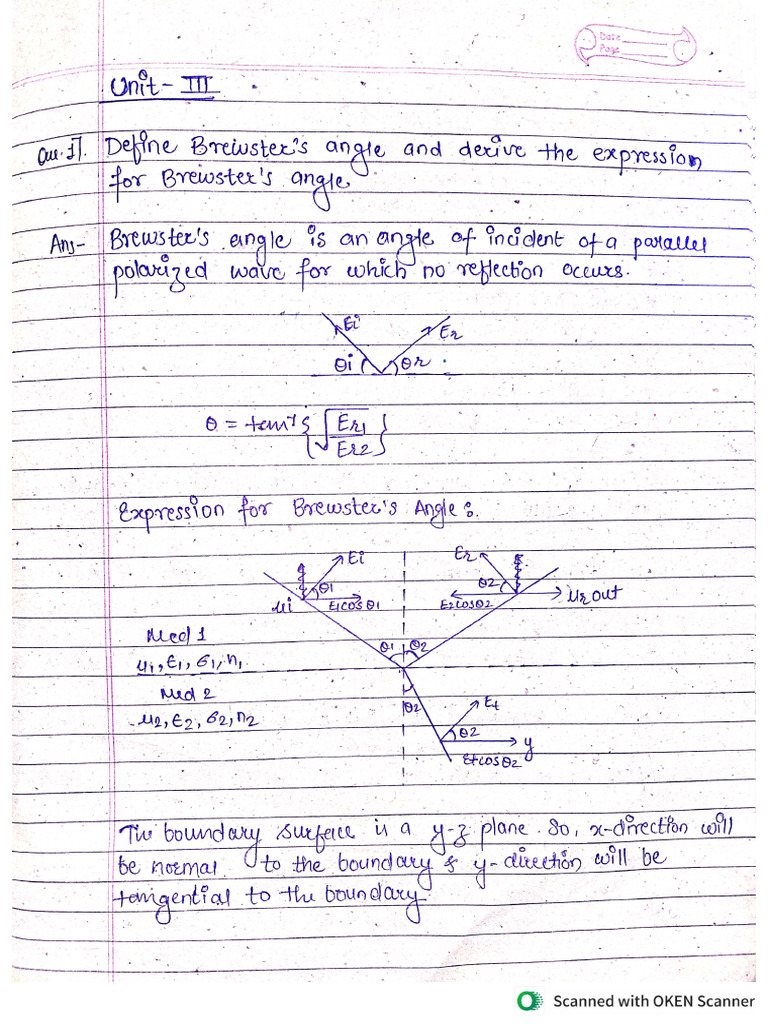 Date
Page
Unit - III
Que. 1].
Define Brewster's angle and derive the expression
for Brewster's angle
Ans-
Brewster's angle is an angle of incident of a parallel
polarized wave for which no reflection occurs.
Ei
Er
θi
θr
θ = tan⁻¹ {√Er1/Er2}
Expression for Brewster's Angle:
Ei
Er
θ1
θ2
μi
E1cosθ1
E2cosθ2
μr out
Med 1
θ1 θ2
μ1, ε1, σ1, η1
Med 2
θ2
Et
μ2, ε2, σ2, η2
θ2
y
Etcosθ2
The boundary surface is a y-z plane. So, x-direction will
be normal to the boundary & y-direction will be
tangential to the boundary.
Scanned with OKEN Scanner